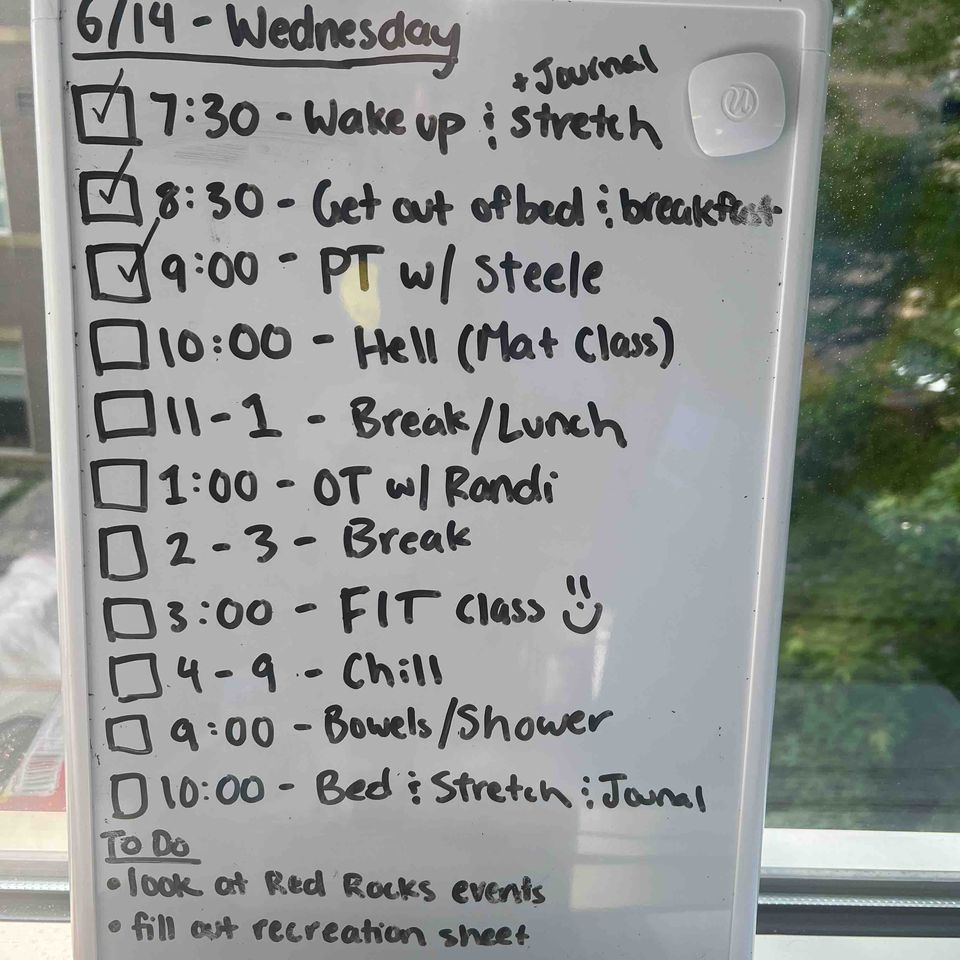 6/14 - Wednesday
+ Journal
7:30 - Wake up & Stretch
8:30 - Get out of bed & breakfast
9:00 - PT w/ Steele
10:00 - Hell (Mat Class)
11-1 - Break/Lunch
1:00 - OT w/ Randi
2-3 - Break
3:00 - FIT Class
4-9 - Chill
9:00 - Bowels/Shower
10:00 - Bed & Stretch & Jounal
To Do
• look at Red Rocks events
• fill out recreation sheet